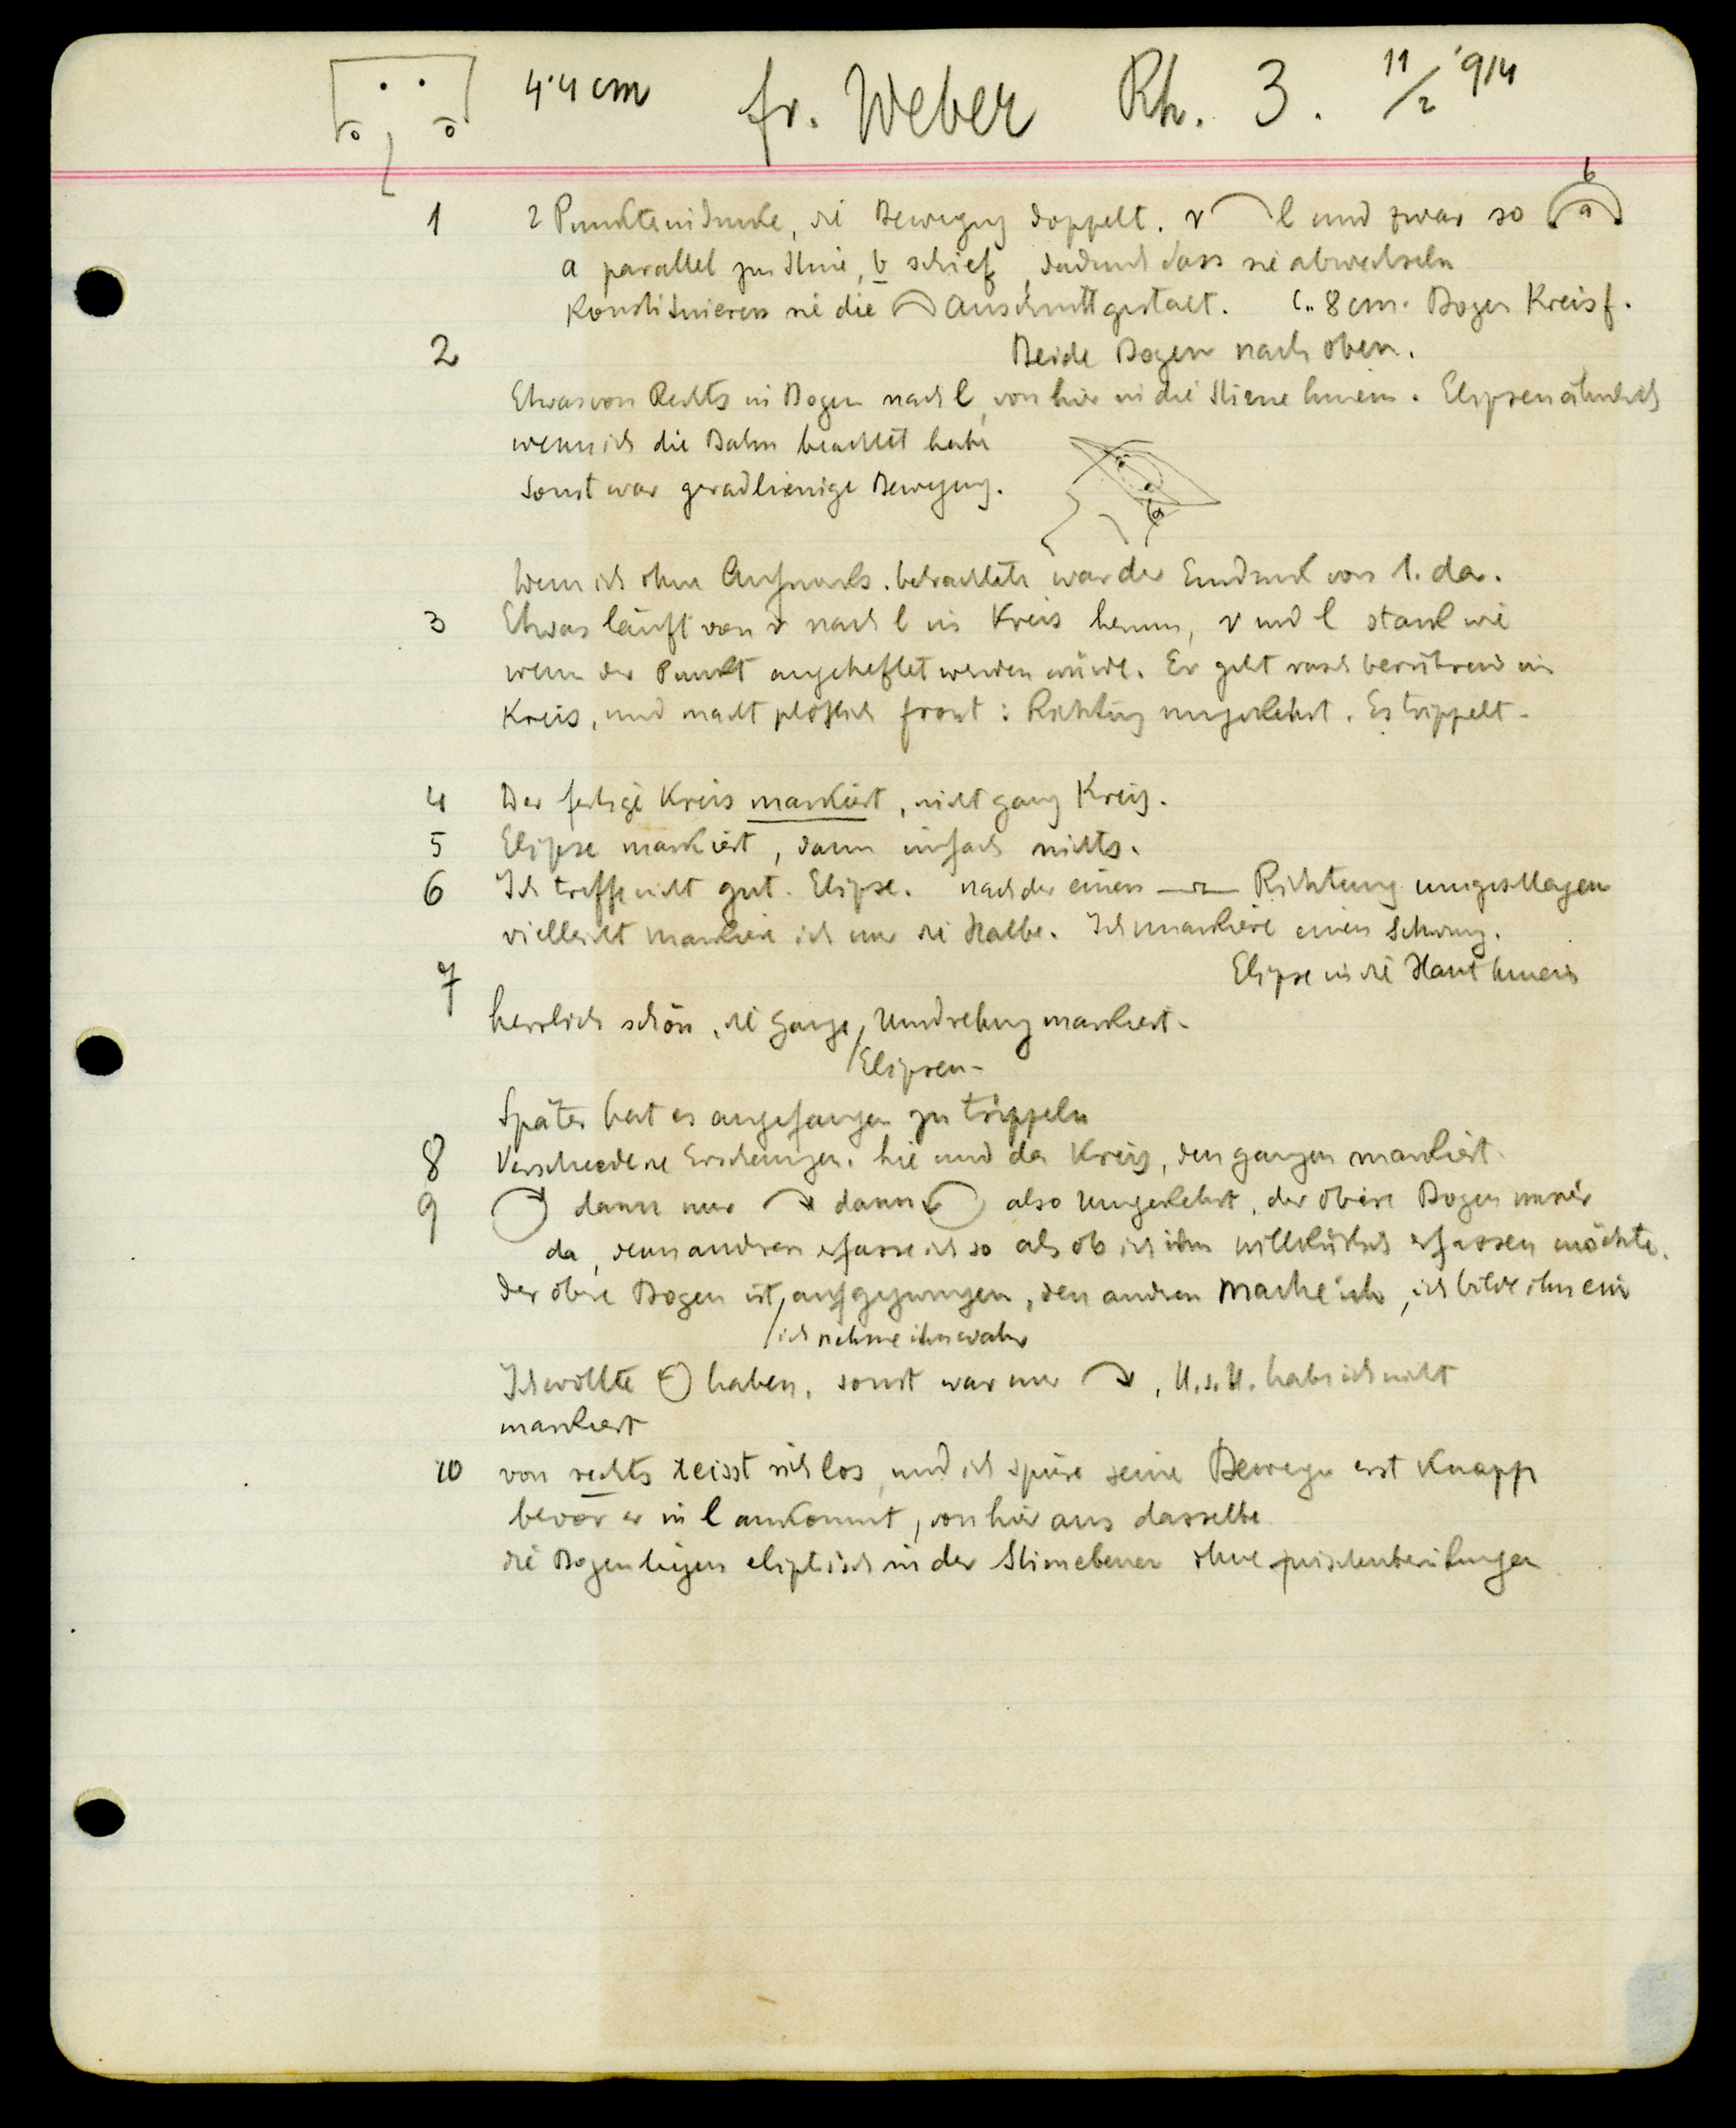 4·4 cm fr. Weber Rh. 3. 11/2 '914
1 2 Punkteindrücke, die Bewegung doppelt. r l und zwar so a b
a parallel zur Stirne, b schief, dadurch dass sie abwechseln
konstituieren sie die Ausschnittgestalt. C.. 8 cm. Bogen Kreisf.
2 Beide Bogen nach oben.
Etwas von Rechts in Bogen nach l, von hier in die Stirne hinein. Elipsenähnlich
wenn ich die Bahn beachtet habe
Sonst war geradlienige Bewegung.
Wenn ich ohne Aufmerks. betrachtete war der Eindruck von 1. da.
3 Etwas läuft von r nach l im Kreis herum, r und l stark wie
wenn der Punkt angeheftet werden würde. Er geht rasch berührend im
Kreis, und macht plötzlich front: Richtung umgekehrt. Es trippelt-
4 Der fertige Kreis markiert, nicht ganz Kreis.
5 Elipse markiert, dann einfach nichts.
6 Ich treffe nicht gut. Elipse. nach der einen Richtung umgeschlagen
vielleicht markiere ich nur die Halbe. Ich markiere einen Schwung.
7 Elipse in die Haut hinein
herrlich schön, die ganze Umdrehung markiert.
Elipsen-
Später hat es angefangen zu trippeln
8 Verschiedene Erscheinungen. hie und da Kreis, den ganzen markiert.
9 dann nur dann also umgekehrt, der obere Bogen immer
da, den anderen erfasse ich so als ob ich ihn willkürlich erfassen möchte.
Der obere Bogen ist aufgezwungen, den andren mache ich, ich bilde ihn ein
ich nehme ihn wahr
Ich wollte haben, sonst war nur , U.s.U. habe ich nicht
markiert
10 von rechts reisst sich los, und ich spüre seine Bewegu erst knapp
bevor er in l ankommt, von hier aus dasselbe
die Bogen liegen eliptisch in der Stirnebenen ohne zwischenberührungen